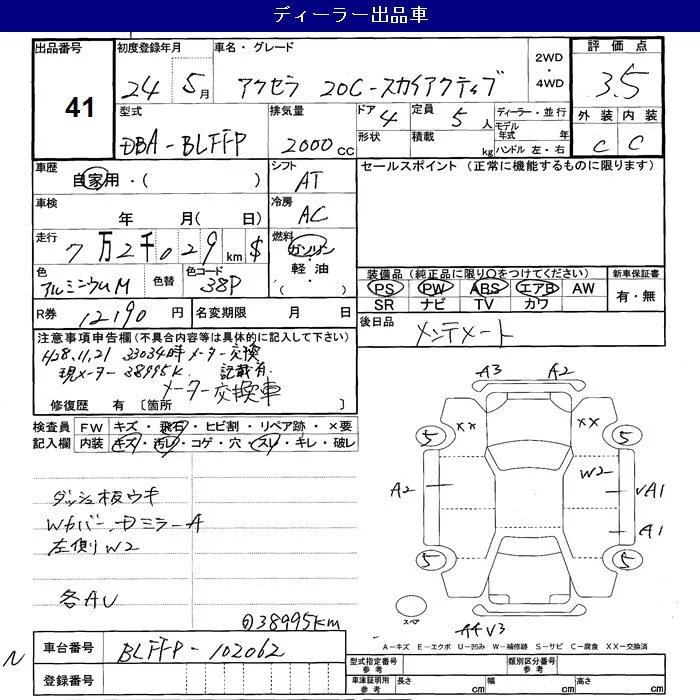 ディーラー出品車
出品番号 41
初度登録年月 24 5月
車名・グレード アクセラ 20C-スカイアクティブ
2WD・4WD
評価点 3.5
型式 DBA-BLFFP
排気量 2000cc
ドア 4
形状
定員 5人
積載 kg
ディーラー・並行
モデル年式 年
ハンドル 左・右
外装 内装
C C
車歴 自家用・( )
シフト AT
セールスポイント (正常に機能するものに限ります)
車検 年 月( 日)
冷房 AC
走行 7万2千029km $
燃料 ガソリン・軽油・( )
色 アルミニウムM
色替
色コード 38P
装備品 (純正品に限り○をつけてください)
PS PW ABS エアB AW
SR ナビ TV カワ
新車保証書 有・無
R券 12190円
名変期限 月 日
後日品 メンテノート
注意事項申告欄 (不具合内容等は具体的に記入して下さい)
H28.11.21 33034時 メーター交換
現メーター 38995K 記載有
メーター交換車
修復歴 有 [箇所 ]
検査員記入欄
FW キズ・飛石・ヒビ割・リペア跡・×要
内装 キズ・汚レ・コゲ・穴・スレ・キレ・破レ
ダッシュ板ウキ
Wカバー、Dミラー A
左側リ W2
各AU
① 38995km
A3 A2
5 XX XX 5
A2 W2 VA1
A1
5 5
スペア
A4 V3
A-キズ E-エクボ U-凹み W-補修跡 S-サビ C-腐食 XX-交換済
N
車台番号 BLFFP-102062
登録番号
型式指定番号 類別区分番号
車庫証明用参考 長さ cm 幅 cm 高さ cm